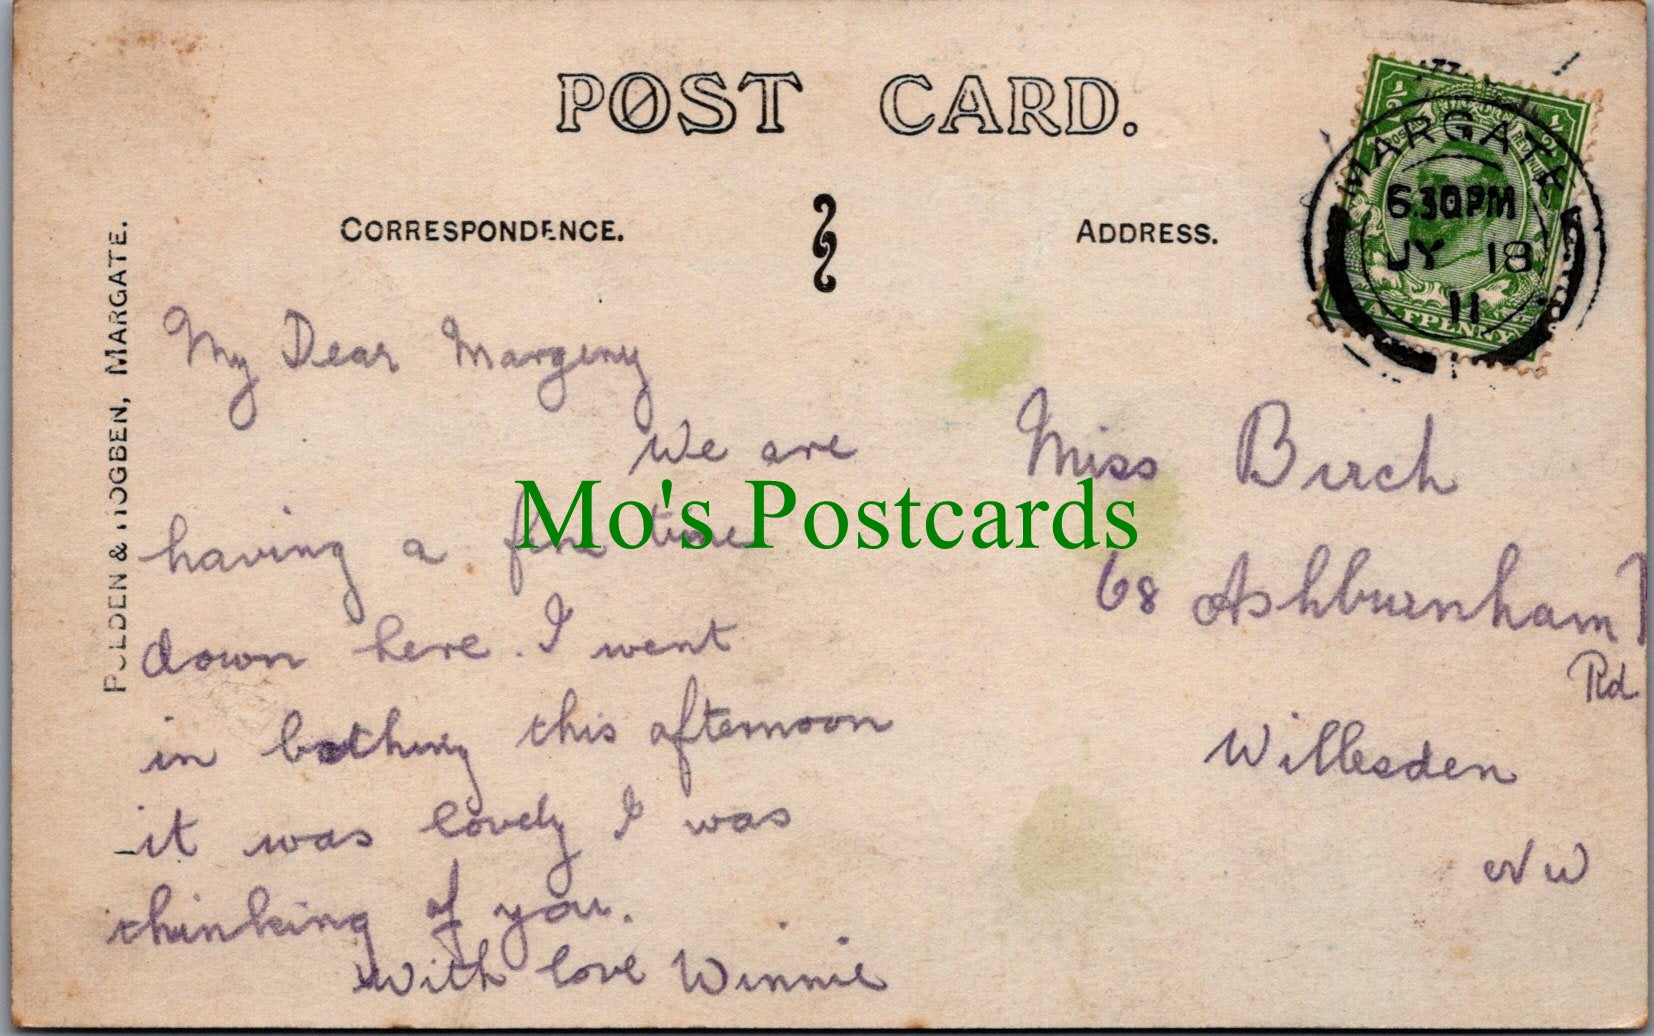 POST CARD.
CORRESPONDENCE.
ADDRESS.
PULDEN & HOGBEN, MARGATE.
MARGATE
6.30PM
JY 18
11
HALFPENNY
½ ½
My Dear Margery
We are
having a fine time
down here. I went
in bathing this afternoon
it was lovely I was
thinking of you.
With love Winnie
Miss Birch
68 Ashburnham
Rd
Willesden
NW
Mo's Postcards